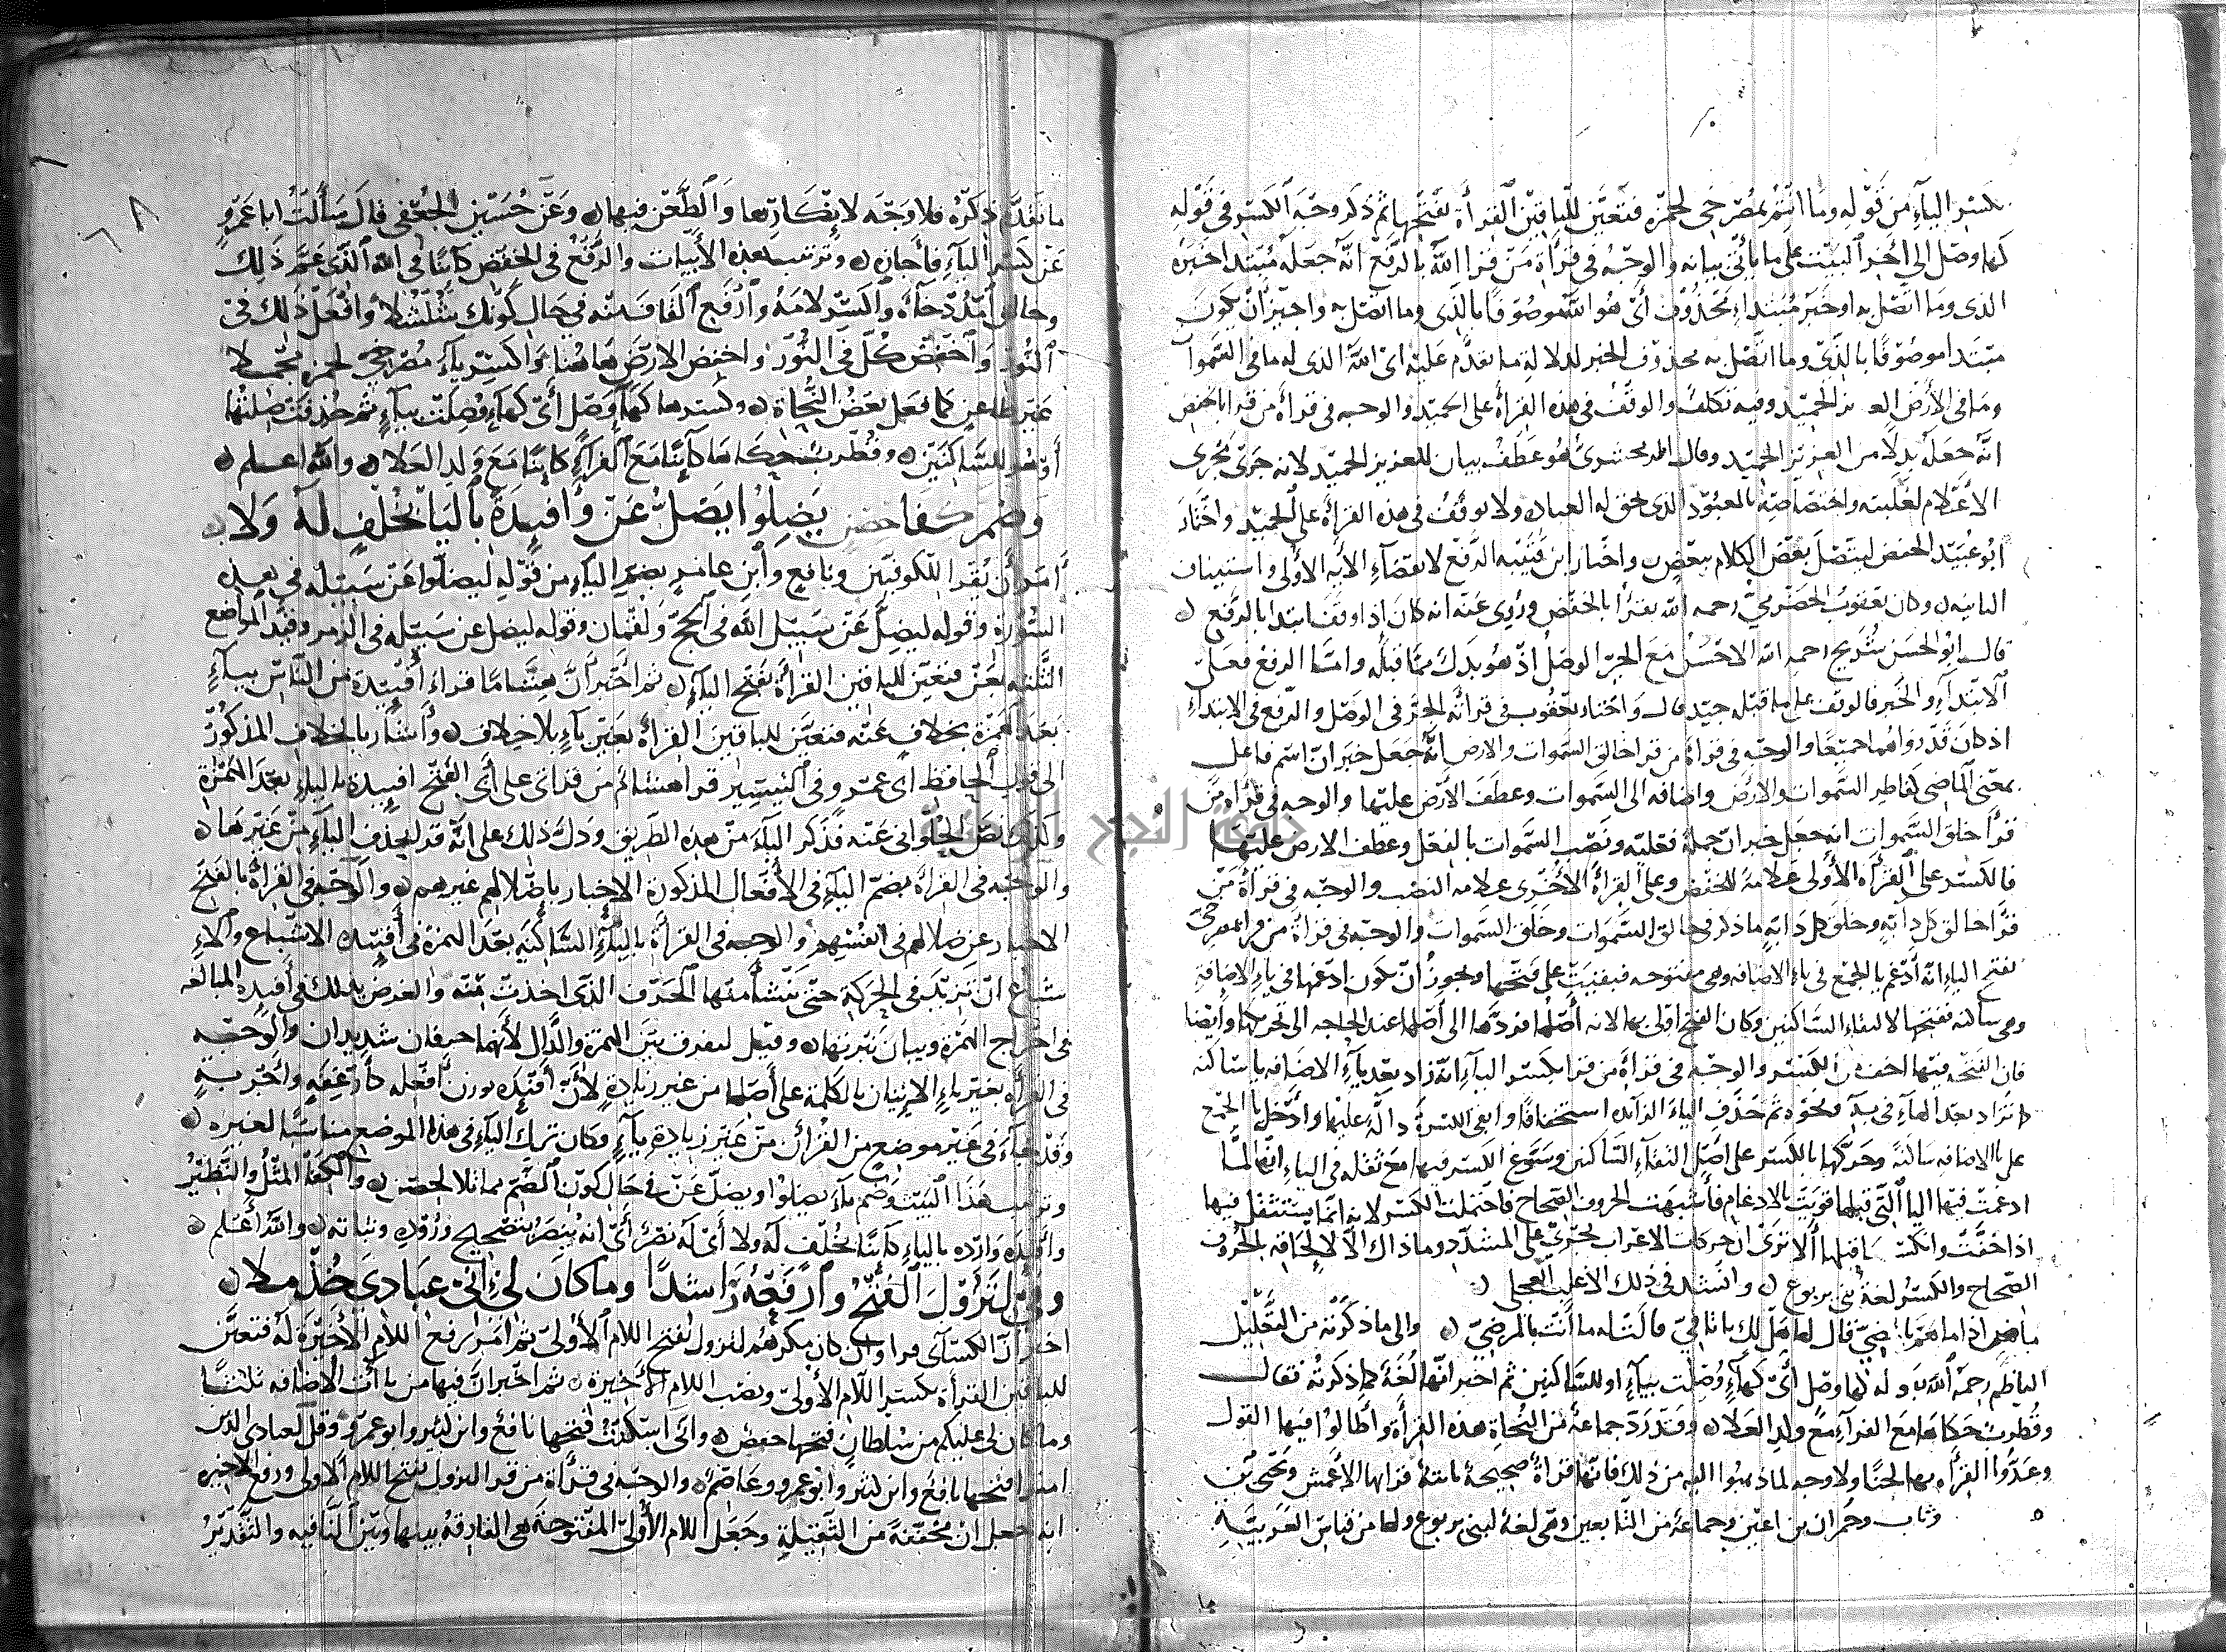 بكسر الياء من قوله وما انتم بمصرخي لحمزة فتعين للباقين القراءة بفتحها ثم ذكر وجه الكسر في قوله
كها وصل الى اخر البيت على ما يأتي بيانه والوجه في قراءة من قرا الله بالرفع انه جعله مبتدا خبره
الذي وما اتصل به او خبر مبتداء محذوف أي هو الله موصوفا بالذي وما اتصل به واجيز ان يكون
مبتدا موصوفا بالذي وما اتصل به محذوف الخبر لدلالة ما تقدم عليه اي الله الذي له ما في السموات
وما في الأرض العزيز الحميد وفيه تكلف والوقف في هذه القراءة على الحميد والوجه في قراءة من قرا بالخفض
انه جعله بدلا من العزيز الحميد وقال الزمخشري هو عطف بيان للعزيز الحميد لانه جرى مجرى
الأعلام لغلبته واختصاصه بالمعبود الذي تحق له العبادة ولا يوقف في هذه القراءة على الحميد واختار
ابو عبيد الخفض ليتصل بعض الكلام ببعض واختار ابن قتيبة الرفع لانقضاء الاية الأولى واستيناف
الثانية وكان يعقوب الحضرمي رحمه الله يقرأ بالخفض وروي عنه انه كان اذا وقف ابتدا بالرفع
قال ابو الحسن شريح رحمه الله الاحسن مع الجر الوصل اذ هو بدل مما قبله واما الرفع فعلى
الابتداء والخبر فالوقف على ما قبله جيد قال واختار يعقوب في قراءته الجر في الوصل والرفع في الابتداء
اذ كان قد رواهما جميعا والوجه في قراءة من قرا خالق السموات والارض انه جعل خبر ان اسم فاعل
بمعنى الماضي كفاطر السموات والارض واضافه الى السموات وعطف الأرض عليها والوجه في قراءة من
قرأ خلق السموات انه جعل خبر ان جملة فعلية ونصب السموات بالفعل وعطف الارض عليها
فالكسر على القراءة الأولى علامة للخفض وعلى القراءة الأخرى علامة النصب والوجه في قراءة من
قرا خالق كل دابة وخلق كل دابة ما ذكر في خالق السموات وخلق السموات والوجه في قراءة من قرا بمصرخي
بفتح الياء انه أدغم يا الجمع في ياء الاضافة وهي مفتوحة فبقيت على فتحها ويجوز أن يكون ادغمها في ياء الاضافة
وهي ساكنة ففتحها لالتقاء الساكنين وكان الفتح اولى بها لانه أصلها فردها الى أصلها عند الحاجة الى تحريكها وايضا
فان الفتحة فيها اخف من الكسر والوجه في قراءة من قرا بكسر الياء انه زاد بعد ياء الاضافة يا ساكنة
كما تزاد بعد الهاء في به ونحوه ثم حذف الياء الزائدة استخفافا وابقى الكسرة دالة عليها وادخل يا الجمع
على يا الاضافة ساكنة وحركها بالكسر على اصل التقاء الساكنين وسوغ الكسر فيها مع ثقله في الياء انها لما
ادغمت فيها اليا التي قبلها قويت بالادغام فأشبهت الحروف الصحاح فاحتملت الكسر لانه انما يستثقل فيها
اذا خففت وانكسر ما قبلها ألا ترى ان حركات الاعراب تجري على المشدد وما ذاك الا لإلحاقه بالحروف
الصحاح والكسر لغة بني يربوع وانشد في ذلك الأغلب العجلي
ماض اذا ما هم بالمضي قال لها هل لك يا تا في قالت له ما أنت بالمرضي والى ما ذكرته من التعليل
الناظم رحمه الله بقوله كها وصل أي كهاء وصلت بياء او للساكنين ثم اخبر انها لغة كما ذكرته فقال
وقطرب حكاها مع الفراء مع ولد العلا وقد رد جماعة من النحاة هذه القراءة وأطالوا فيها القول
وعدوا القراءة بها لحنا ولا وجه لما ذهبوا اليه من ذلك فانها قراءة صحيحة ثابتة قرا بها الأعمش ويحيى بن
وثاب وحمران بن اعين وجماعة من التابعين وهي لغة لبني يربوع ولها من قياس العربية
ما تقدم ذكره فلا وجه لإنكارها والطعن فيها وعن حسين الجعفي قال سألت ابا عمرو
عن كسر الياء فأجازه وترتيب هذه الأبيات والرفع في الخفض كائنا في الله الذي عم ذلك
وخالق امدد خاءه واكسر لامه وارفع القاف منه في حال كونك شلشلا وافعل ذلك في
النور واخفض كل في النور واخفض الارض ها هنا واكسر ياء مصرخي لحمزة مجملا
غير طاعن كما فعل بعض النحاة وكسرها كها وصل أي كهاء وصلت بياء ثم حذفت صلتها
أو هو للساكنين وقطرب حكاها كائنا مع الفراء كائنا مع ولد العلا والله اعلم
وضم كفا حصن يضلوا يضل عن وأفييدة باليا بخلف له ولا
أمر أن يقرا للكوفيين ونافع وابن عامر بضم الياء من قوله ليضلوا عن سبيله في هذه
السورة وقوله ليضل عن سبيل الله في الحج ولقمان وقوله ليضل عن سبيله في الزمر وقيد المواضع
الثلثة بعن فتعين للباقين القراءة بفتح الياء ثم اخبر أن هشاما قراء أفييدة من الناس بياء
بعد الهمزة بخلاف عنه فتعين للباقين القراءة بغير ياء بلا خلاف وأشار بالخلاف المذكور
الى قول الحافظ ابي عمرو في التيسير قرا هشام من قراتي على أبي الفتح افييدة بالياء بعد الهمزة
وكذلك نص الحلواني عنه فذكر الياء من هذه الطريق ودل ذلك على أنه قد يحذف الياء من غيرها
والوجه في القراءة بضم الياء في الأفعال المذكورة الاخبار باضلالهم غيرهم والوجه في القراءة بالفتح
الاخبار عن ضلالهم في انفسهم والوجه في القراءة بالياء الساكنة بعد الهمزة في أفييدة الاشباع والاء
شباع ان تزيد في الحركة حتى ينشأ منها الحرف الذي اخذت منه والغرض بذلك في أفييدة المبالغة
في اخراج الهمزة وبيان نبرتها وقيل ليفرق بين الهمزة والدال لأنهما حرفان شديدان والوجه
في القراءة بغير ياء الاتيان بالكلمة على أصلها من غير زيادة لأن أفئدة بوزن أفعلة كأرغفة واخربة
وقد جاء في غير موضع من القرآن من غير زيادة ياء وكان ترك الياء في هذا الموضع مناسبا لغيره
وترتيب هذا البيت وضم ياء يضلوا ويضل عن في حال كون الضم مماثلا لحصن والكفا المثل والنظير
وأفييدة وارده بالياء كائنا بخلف له ولا أي له نصر أي انه ينصر بتصحيح وروده وثباته والله أعلم
وفي لتزول الفتح وارفعه راشدا وما كان لي إني عبادي خذ ملا
اخبر أن الكسائي قرا وان كان مكرهم لتزول بفتح اللام الأولى ثم امر برفع اللام الأخيرة له فتعين
للباقين القراءة بكسر اللام الأولى ونصب اللام الأخيرة ثم اخبر ان فيها من ياأت الاضافة ثلثا
وما كان لي عليكم من سلطان فتحها حفص واني اسكنت فتحها نافع وابن كثير وابو عمرو وقل لعبادي الذين
امنوا فتحها نافع وابن كثير وابو عمرو وعاصم والوجه في قراءة من قرا لتزول بفتح اللام الاولى ورفع الاخيرة
انه جعل ان مخففة من الثقيلة وجعل اللام الأولى المفتوحة هي الفارقة بينها وبين النافية والتقدير